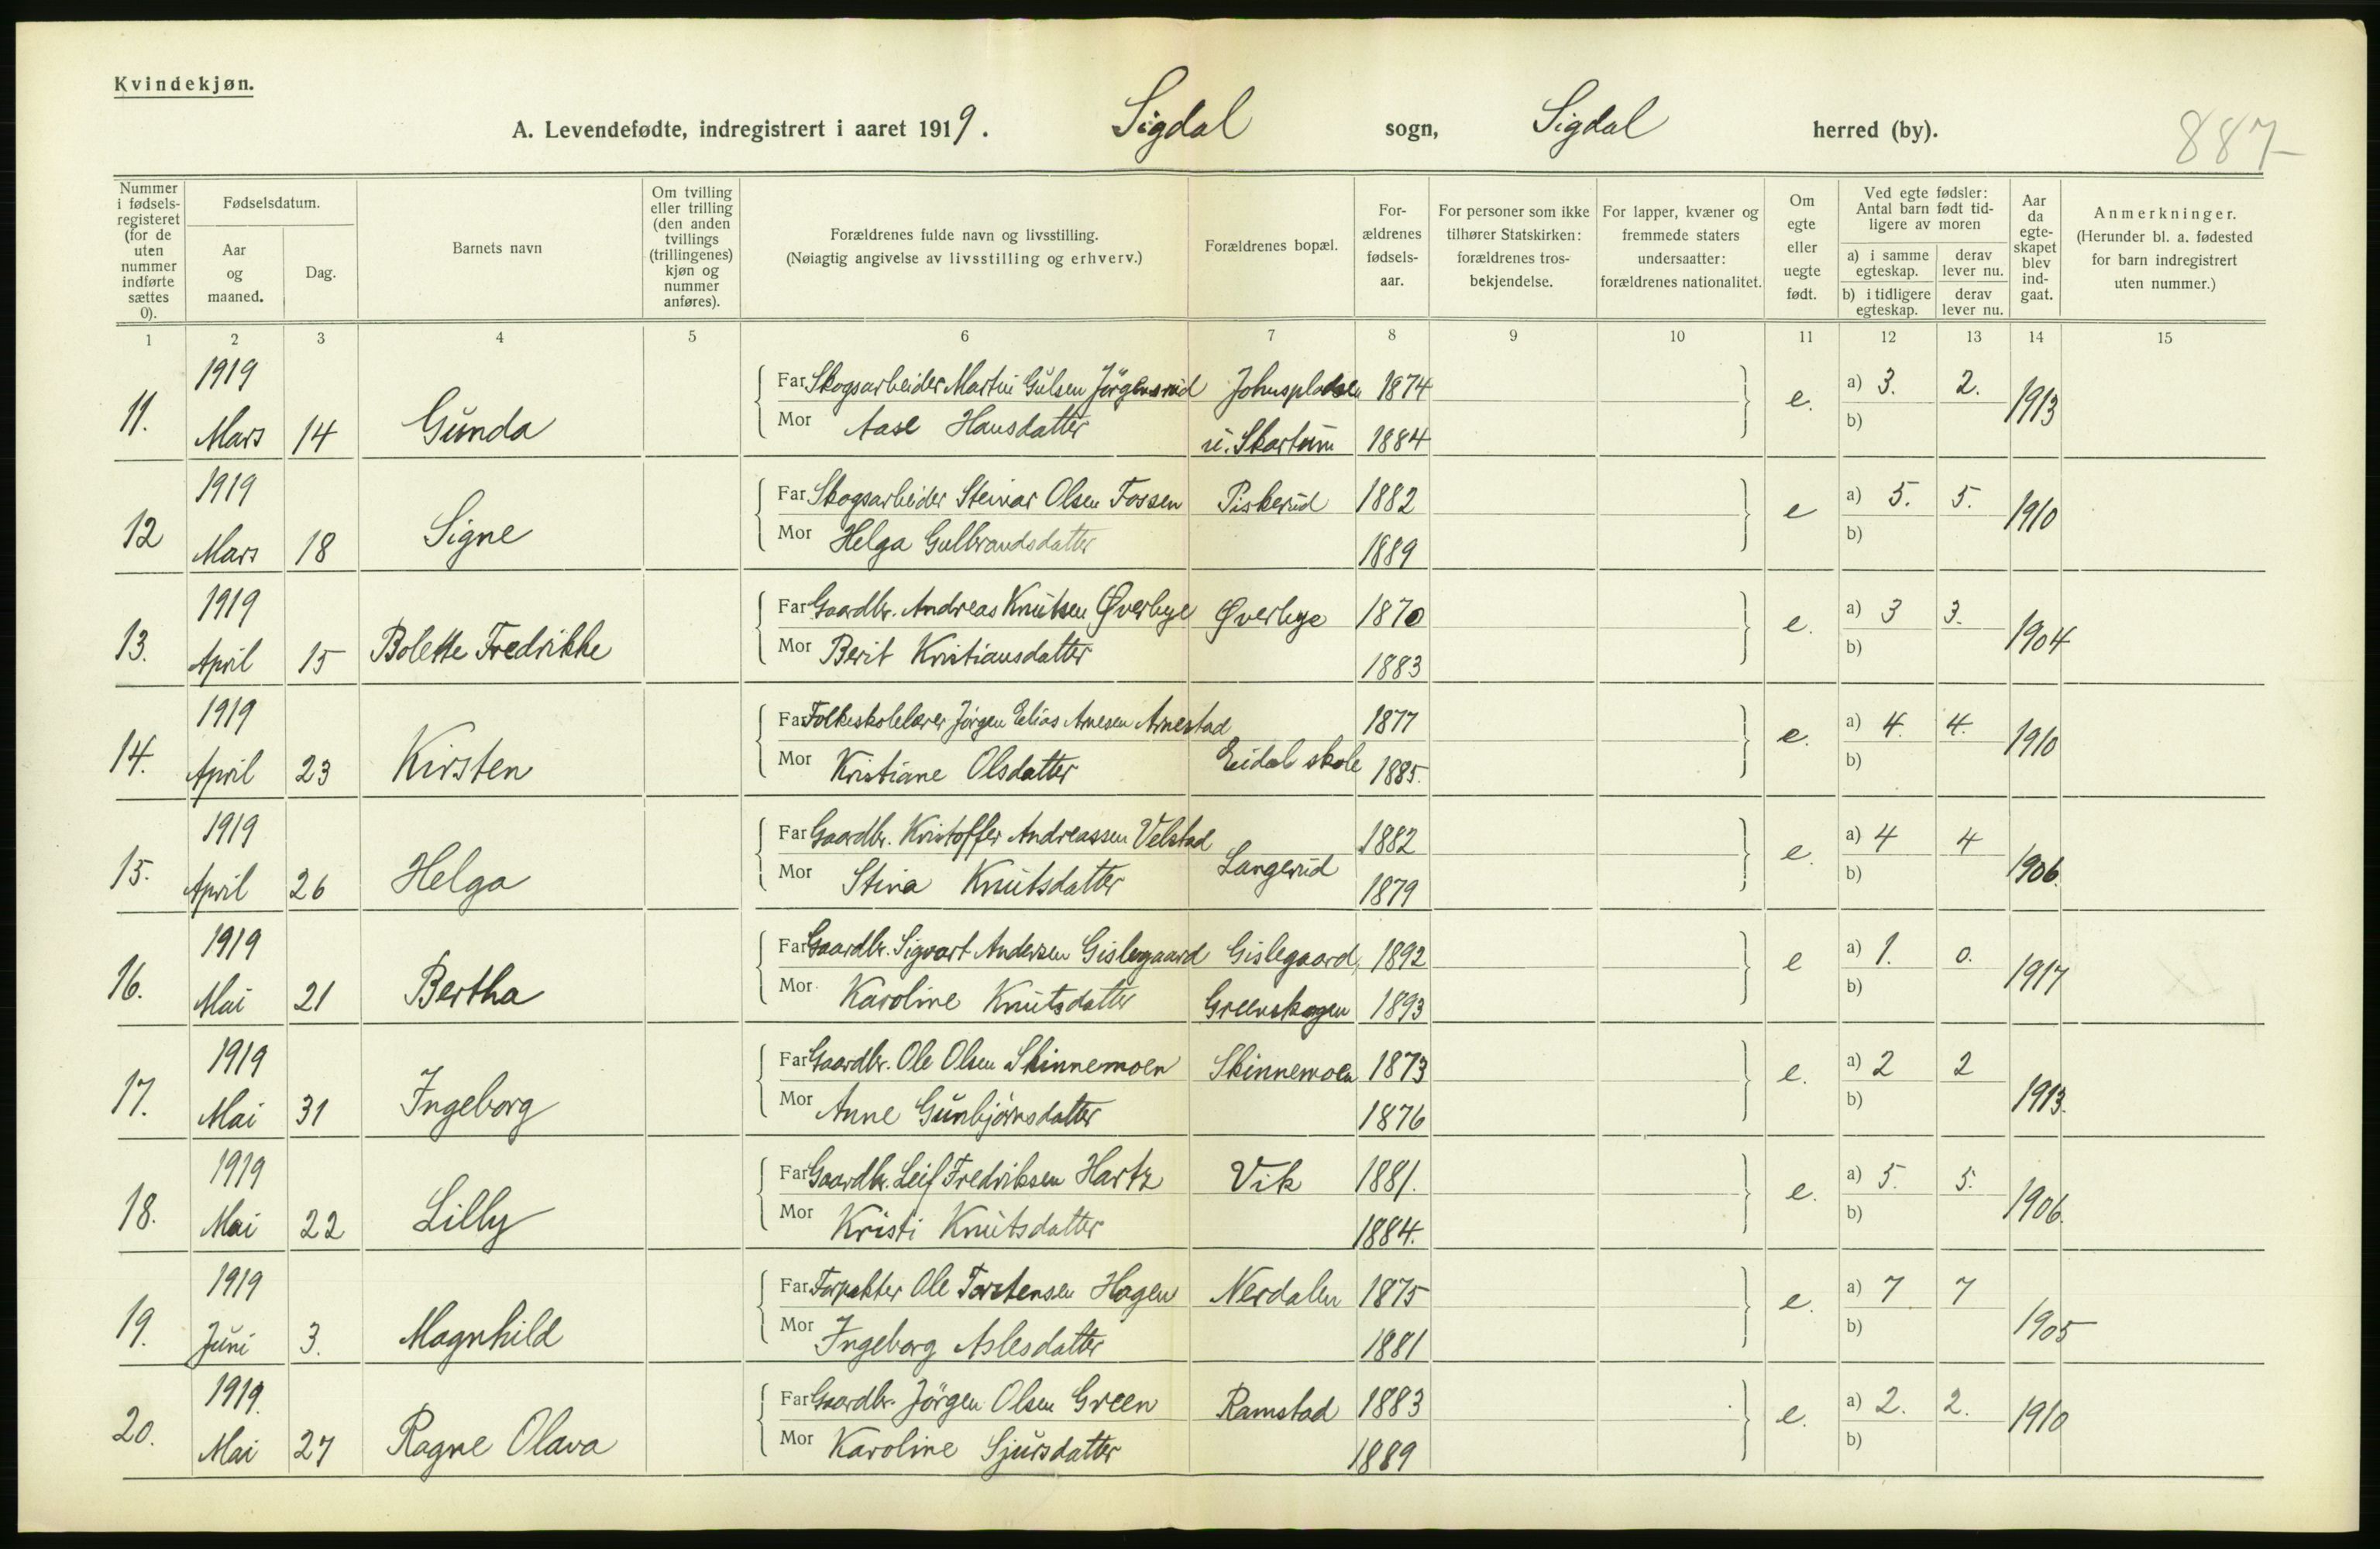 Kvindekjøn.
A. Levendefødte, indregistrert i aaret 1919. Sigdal sogn, Sigdal herred (by). 887
Nummer i fødselsregisteret (for de uten nummer indførte sættes 0).
Fødselsdatum.
Aar og maaned.
Dag.
Barnets navn
Om tvilling eller trilling (den anden tvillings (trillingenes) kjøn og nummer anføres).
Forældrenes fulde navn og livsstilling.
(Nøiagtig angivelse av livsstilling og erhverv.)
Forældrenes bopæl.
Forældrenes fødselsaar.
For personer som ikke tilhører Statskirken: forældrenes trosbekjendelse.
For lapper, kvæner og fremmede staters undersaatter: forældrenes nationalitet.
Om egte eller uegte født.
Ved egte fødsler: Antal barn født tidligere av moren
a) i samme egteskap. derav lever nu.
b) i tidligere egteskap. derav lever nu.
Aar da egteskapet blev indgaat.
Anmerkninger.
(Herunder bl. a. fødested for barn indregistrert uten nummer.)
1 2 3 4 5 6 7 8 9 10 11 12 13 14 15
1919 Far Skogsarbeider Martin Gulsen Jörgensrud Johnspladsen 1874 a) 3. 2.
11. Mars 14 Gunda Mor Aase Hansdatter u. Skartum 1884 e. b) 1913
1919 Far Skogsarbeider Steinar Olsen Fossen Piskerud 1882 a) 5. 5.
12 Mars 18 Signe Mor Helga Gulbrandsdatter 1889 e b) 1910
1919 Far Gaardbr. Andreas Knutsen Øverbye Øverbye 1870 a) 3 3.
13. April 15 Bolette Fredrikke Mor Berit Kristiansdatter 1883 e. b) 1904
1919 Far Folkeskolelærer Jörgen Elias Arnesen Arnestad 1877 a) 4. 4.
14. April 23 Kirsten Mor Kristiane Olsdatter Eidal skole 1885. e. b) 1910
1919 Far Gaardbr. Kristoffer Andreassen Velstad 1882 a) 4 4
15. April 26 Helga Mor Stina Knutsdatter Langerud 1879 e. b) 1906.
1919 Far Gaardbr. Sigvart Andersen Gislegaard Gislegaard, 1892 a) 1. 0.
16. Mai 21 Bertha Mor Karoline Knutsdatter Greenskogen 1893 e b) 1917
1919 Far Gaardbr. Ole Olsen Skinnemoen Skinnemoen 1873 a) 2 2
17. Mai 31 Ingeborg Mor Anne Gunbjörnsdatter 1876 e. b) 1913.
1919 Far Gaardbr. Leif Fredriksen Hartz Vik 1881. a) 5. 5.
18. Mai 22 Lilly Mor Kristi Knutsdatter 1884. e. b) 1906.
1919 Far Forpakter Ole Torstensen Hagen Nerdalen 1875 a) 7 7
19. Juni 3. Magnhild Mor Ingeborg Aslesdatter 1881 e. b) 1905
1919. Far Gaardbr. Jörgen Olsen Green Ramstad 1883 a) 2. 2.
20. Mai 27 Ragne Olava Mor Karoline Sjursdatter 1889 e. b) 1910